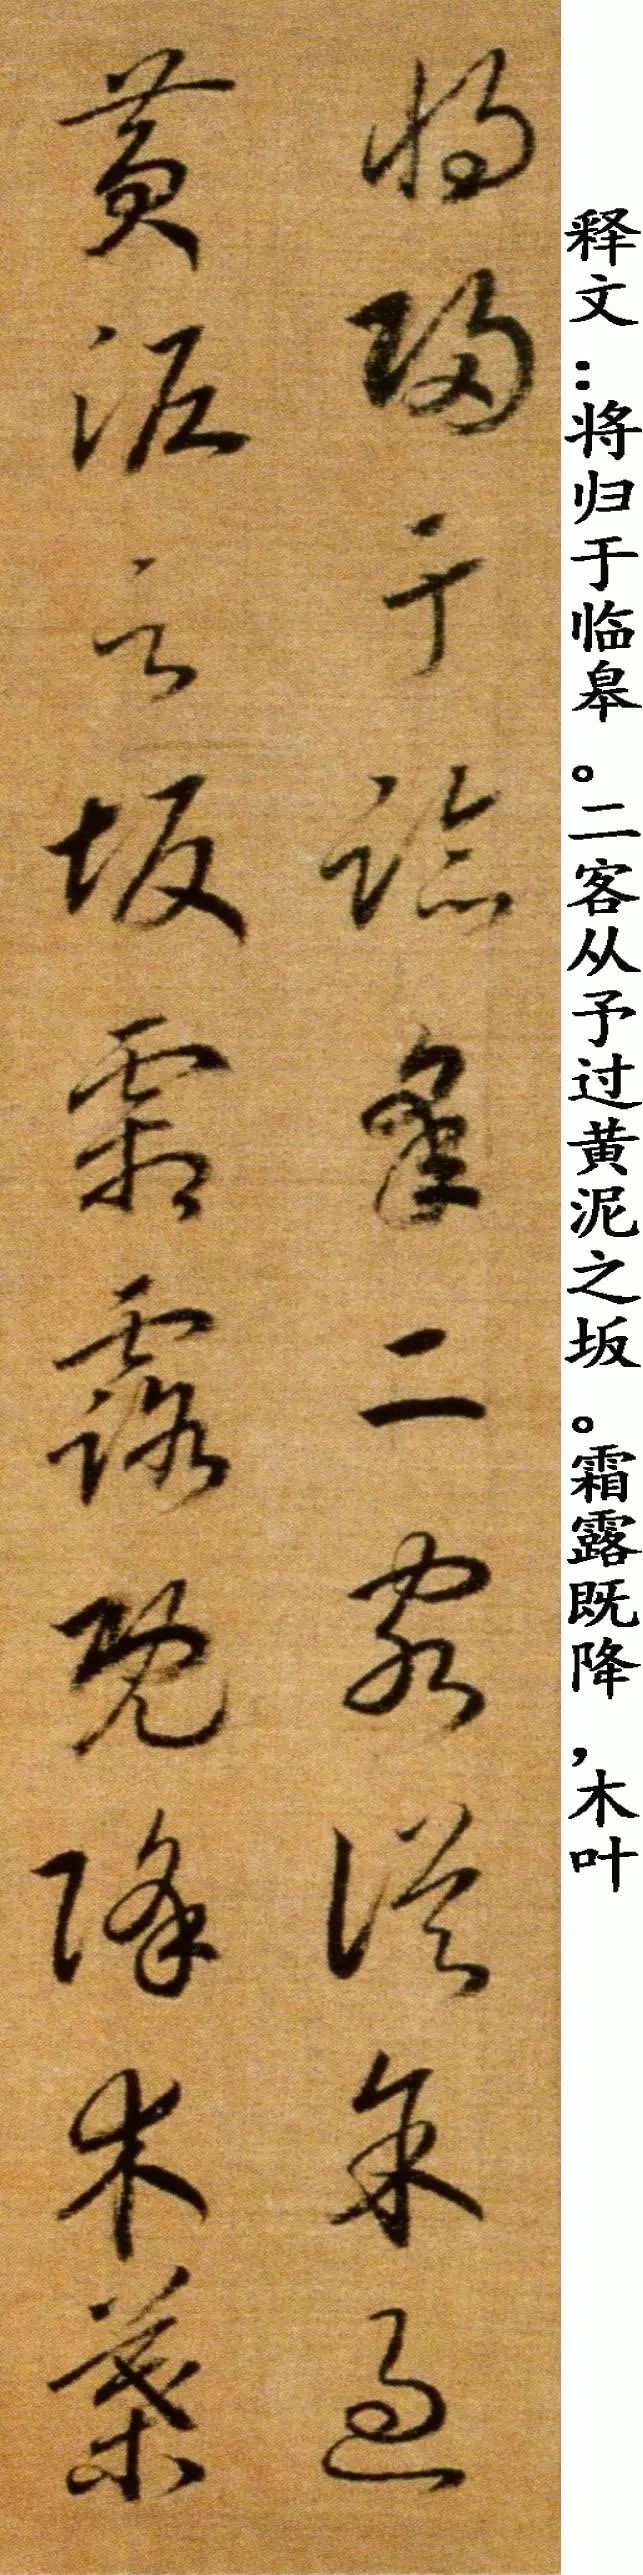 释文：将归于临皋。二客从予过黄泥之坂。霜露既降，木叶
將歸于臨皋二客從余過
黃泥之坂霜露既降木葉